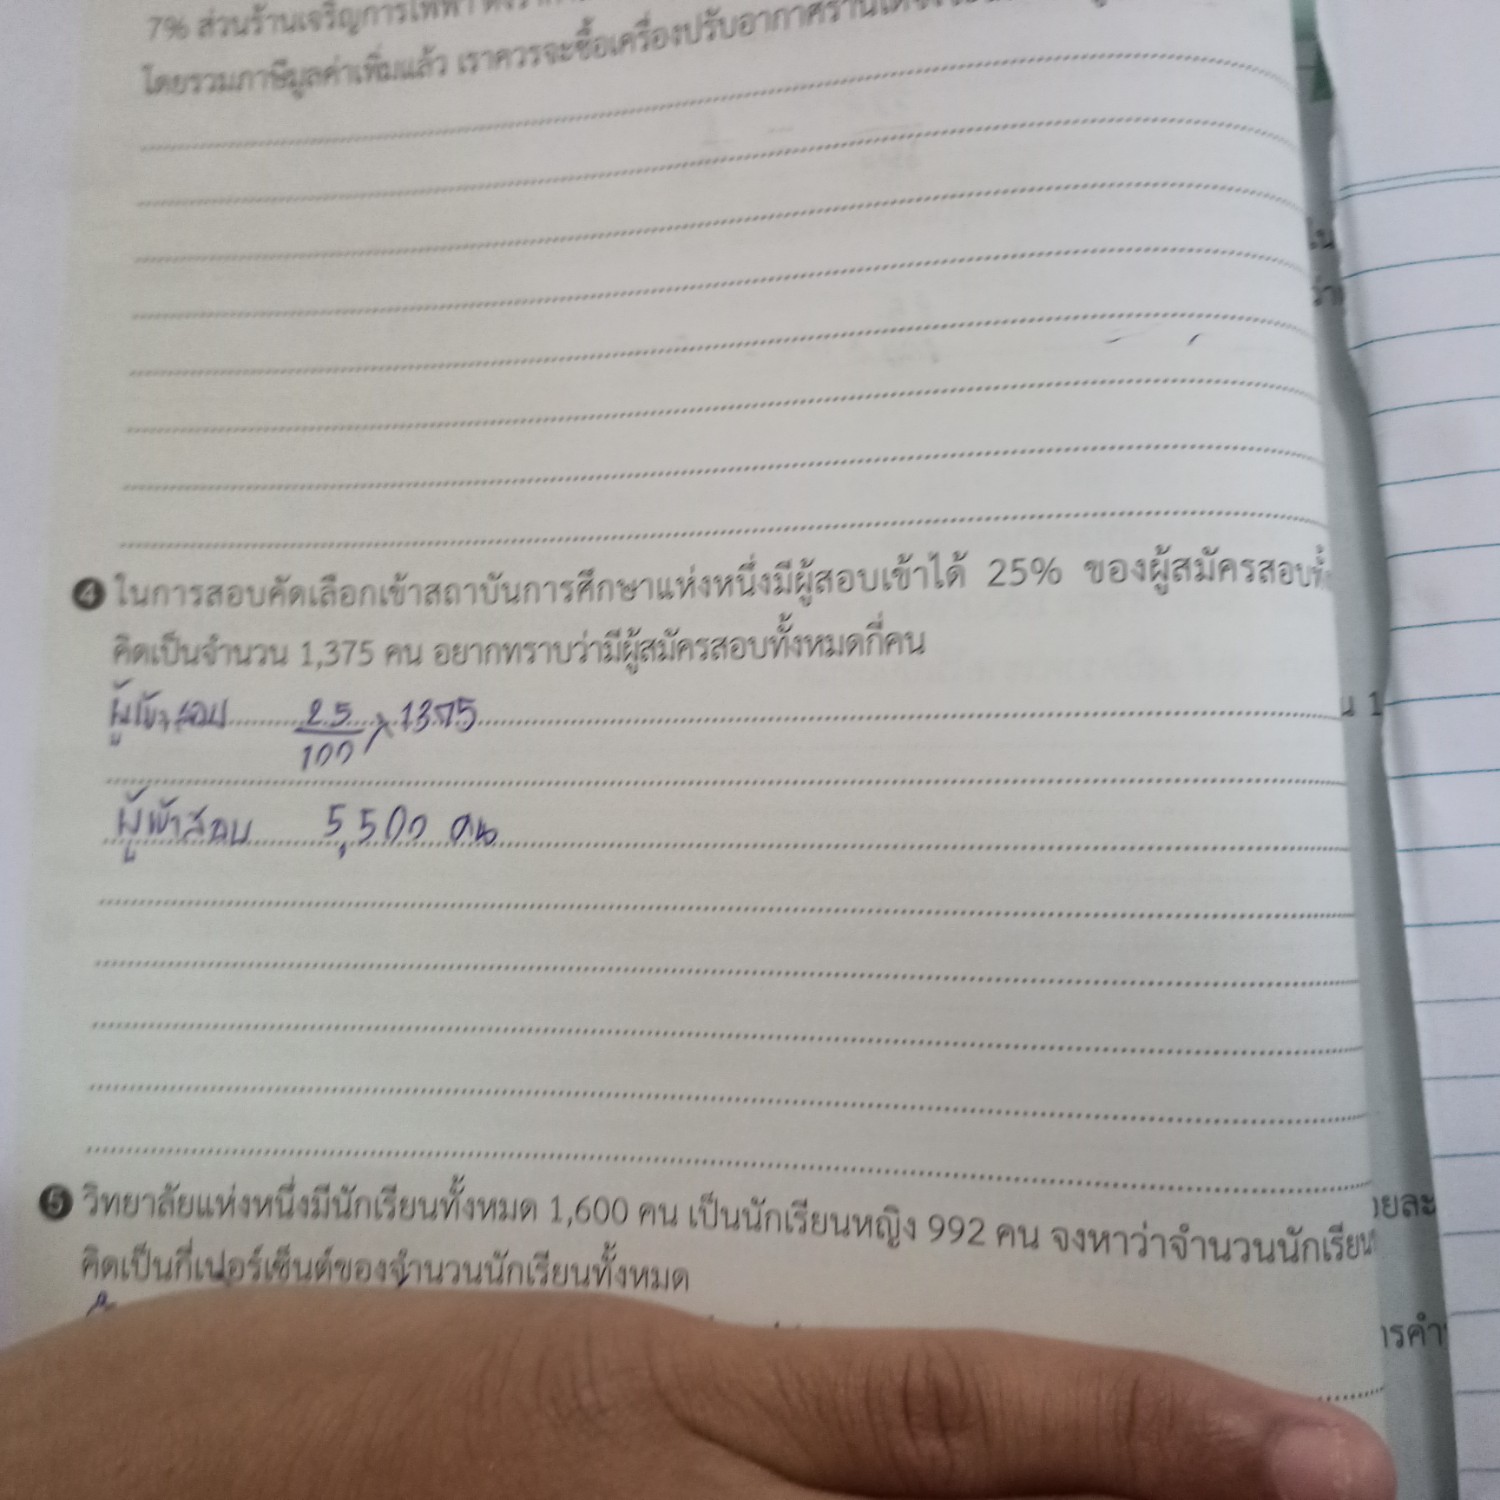 7% ส่วนร้านเจริญการไฟฟ้า
โดยรวมภาษีมูลค่าเพิ่มแล้ว เราควรจะซื้อเครื่องปรับอากาศร้านใด
ใน
ว่า
4 ในการสอบคัดเลือกเข้าสถาบันการศึกษาแห่งหนึ่งมีผู้สอบเข้าได้ 25% ของผู้สมัครสอบทั้
คิดเป็นจำนวน 1,375 คน อยากทราบว่ามีผู้สมัครสอบทั้งหมดกี่คน
ผู้เข้าสอบ 25/100 × 1375
น 1
ผู้เข้าสอบ 5,500 คน
5 วิทยาลัยแห่งหนึ่งมีนักเรียนทั้งหมด 1,600 คน เป็นนักเรียนหญิง 992 คน จงหาว่าจำนวนนักเรียน
ยละ
คิดเป็นกี่เปอร์เซ็นต์ของจำนวนนักเรียนทั้งหมด
ารคำ